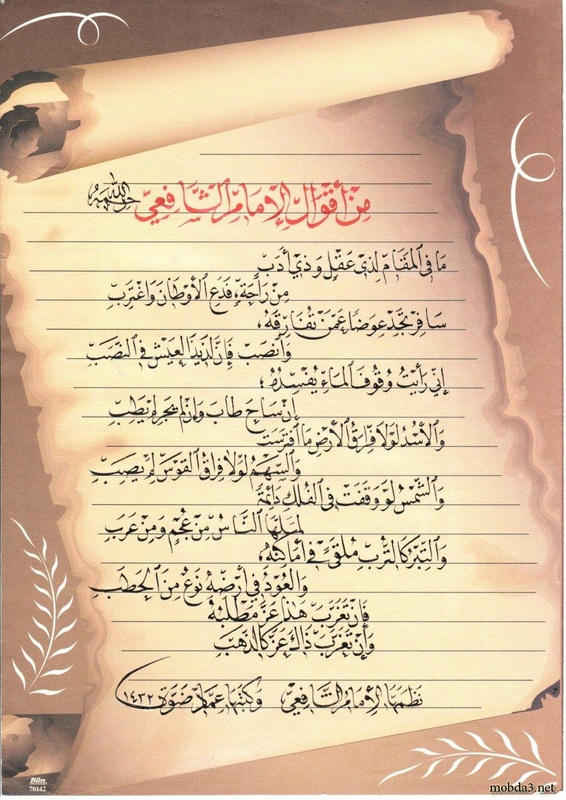 من أقوال الإمام الشافعي رحمه الله
ما في المقام لذي عقل وذي أدب
من راحة فدع الأوطان واغترب
سافر تجد عوضا عمن تفارقه
وانصب فإن لذيذ العيش في النصب
إني رأيت وقوف الماء يفسده
إن ساح طاب وإن لم يجر لم يطب
والأسد لولا فراق الأرض ما افترست
والسهم لولا فراق القوس لم يصب
والشمس لو وقفت في الفلك دائمة
لملها الناس من عجم ومن عرب
والتبر كالترب ملقى في أماكنه
والعود في أرضه نوع من الحطب
فإن تغرب هذا عز مطلبه
وإن تغرب ذاك عز كالذهب
نظمها الإمام الشافعي وكتبها عماد ضوة ١٤٣٢
Bûn.
70142
mobda3.net